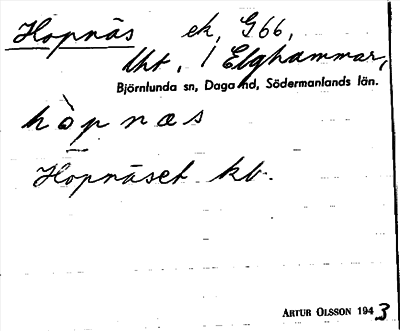 Hopnäs ek, G66,
Uht, / Elghammar,
Björnlunda sn, Daga hd, Södermanlands län.
hòpnæs
Hopnäset kb.
ARTUR OLSSON 1943